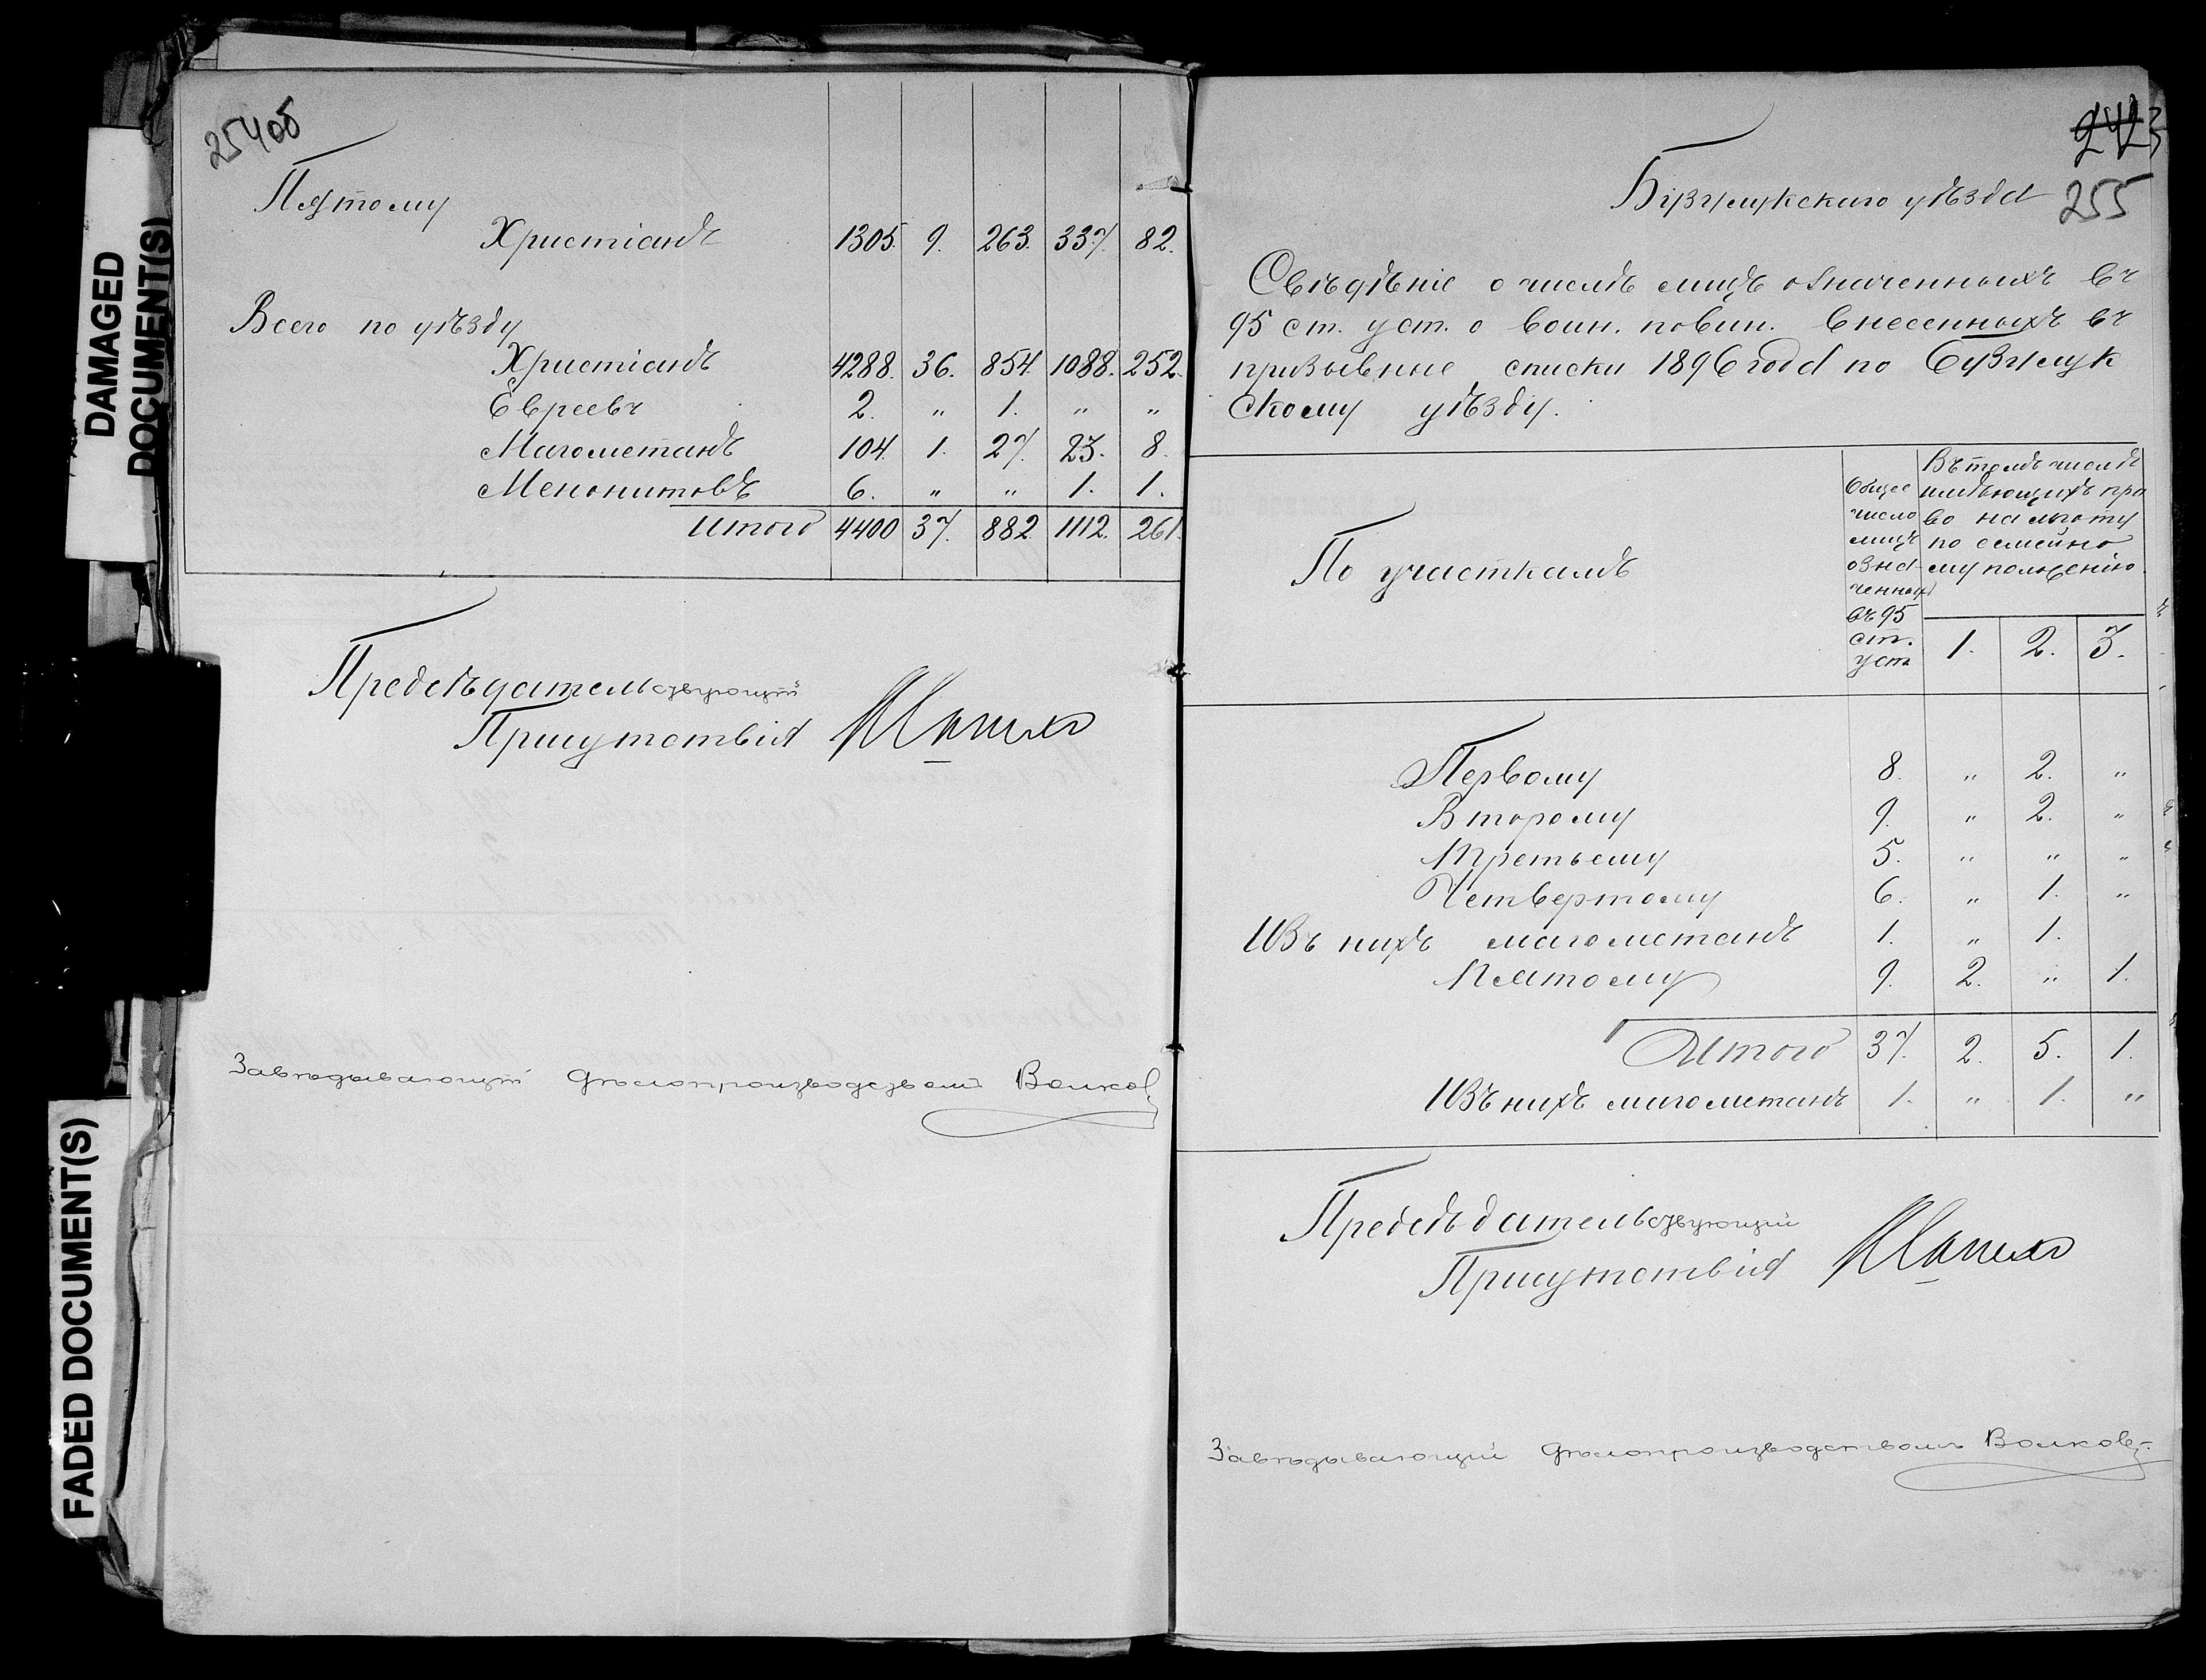 DAMAGED
DOCUMENT(S)
FADED DOCUMENT(S)
254об
Пятому
Христіанъ 1305. 9. 263. 337. 82.
Всего по уѣзду
Христіанъ 4288. 36. 854 1088. 252.
Евреевъ 2. " 1. " "
Магометанъ 104. 1. 27. 23. 8.
Менонитовъ 6. " " 1. 1.
Итого 4400 37. 882. 1112. 261.
Предсѣдательствующій
Присутствія
Завѣдывающій дѣлопроизводствомъ Волковъ
242
255
Бузулукскаго уѣзда
Свѣдѣніе о числѣ лицъ означенныхъ въ
95 ст. уст. о воин. повин. внесенныхъ въ
призывные списки 1896 года по Бузулук
скому уѣзду.
По участкамъ
Общее
число
лицъ
озна-
ченныхъ
въ 95
ст.
уст
Въ томъ числѣ
имѣющихъ пра
во на льготу
по семейно
му положенію.
1. 2. 3.
Первому 8. " 2. "
Второму 9. " 2. "
Третьему 5. " " "
Четвертому 6. " 1. "
Изъ нихъ магометанъ 1. " 1.
Пятому 9. 2. " 1.
Итого 37. 2. 5. 1.
Изъ нихъ магометанъ 1. " 1. "
Предсѣдательствующій
Присутствія
Завѣдывающій дѣлопроизводствомъ Волковъ